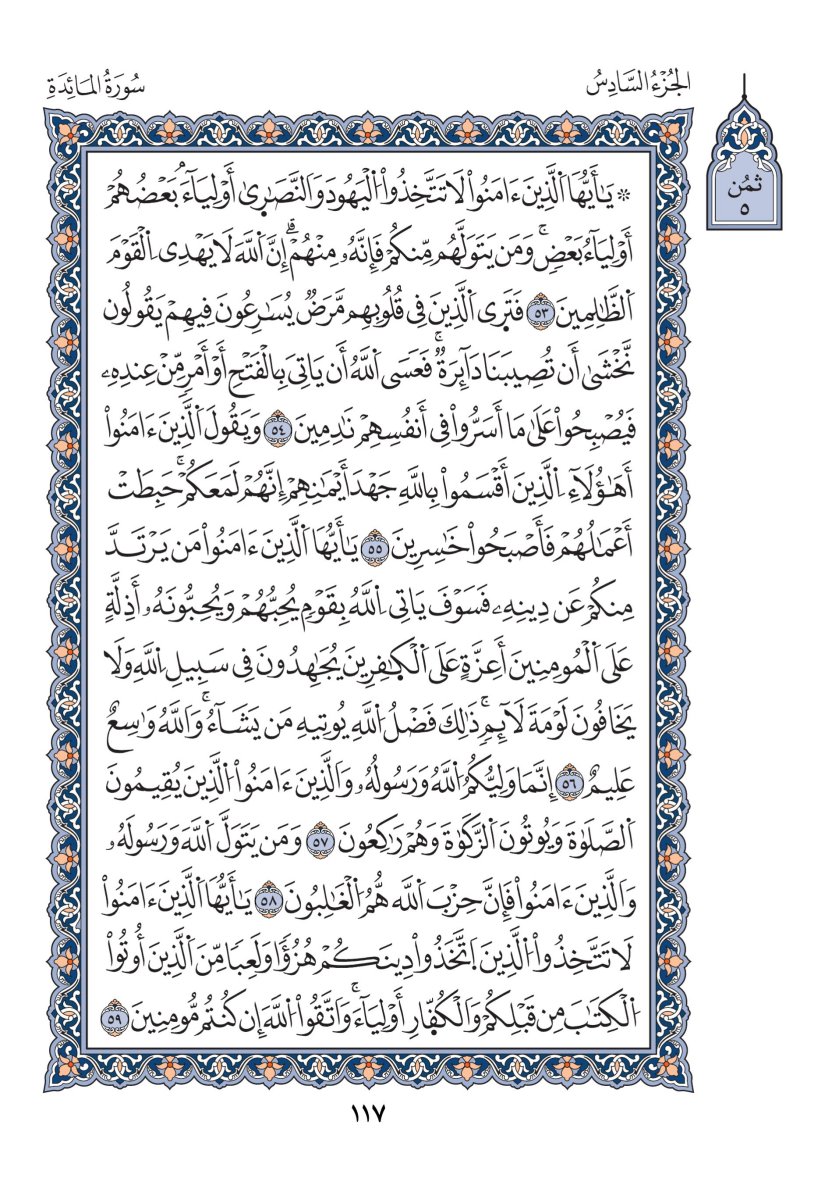 الجُزْءُ السَّادِسُ
سُورَةُ المَائِدَةِ
ثُمُن
٥
* يَٰأَيُّهَا اَ۬لَّذِينَ ءَامَنُواْ لَا تَتَّخِذُواْ اُ۬لْيَهُودَ وَالنَّصَٰرِىٰ أَوْلِيَآءَ بَعْضُهُمْ
أَوْلِيَآءُ بَعْضٖۚ وَمَن يَتَوَلَّهُم مِّنكُمْ فَإِنَّهُۥ مِنْهُمْۗ إِنَّ اَ۬للَّهَ لَا يَهْدِى اِ۬لْقَوْمَ
اَ۬لظَّٰلِمِينَ ٥٣ فَتَرَى اَ۬لَّذِينَ فِى قُلُوبِهِم مَّرَضٞ يُسَٰرِعُونَ فِيهِمْ يَقُولُون
نَّخْشَىٰ أَن تُصِيبَنَا دَآئِرَةٞۚ فَعَسَى اَ۬للَّهُ أَن يَاتِىَ بِالْفَتْحِ أَوْ أَمْرٖ مِّنْ عِندِهِۦ
فَيُصْبِحُواْ عَلَىٰ مَا أَسَرُّواْ فِى أَنفُسِهِمْ نَٰدِمِينَ ٥٤ وَيَقُولَ اَ۬لَّذِينَ ءَامَنُواْ
أَهَٰؤُلَآءِ اِ۬لَّذِينَ أَقْسَمُواْ بِاللَّهِ جَهْدَ أَيْمَٰنِهِمْ إِنَّهُمْ لَمَعَكُمْۚ حَبِطَتْ
أَعْمَٰلُهُمْ فَأَصْبَحُواْ خَٰسِرِينَ ٥٥ يَٰأَيُّهَا اَ۬لَّذِينَ ءَامَنُواْ مَن يَرْتَدَّ
مِنكُمْ عَن دِينِهِۦ فَسَوْفَ يَاتِى اِ۬للَّهُ بِقَوْمٖ يُحِبُّهُمْ وَيُحِبُّونَهُۥ أَذِلَّةٍ
عَلَى اَ۬لْمُومِنِينَ أَعِزَّةٍ عَلَى اَ۬لْكٰ۪فِرِينَ يُجَٰهِدُونَ فِى سَبِيلِ اِ۬للَّهِ وَلَا
يَخَافُونَ لَوْمَةَ لَآئِمٖۚ ذَٰلِكَ فَضْلُ اُ۬للَّهِ يُوتِيهِ مَن يَشَآءُۚ وَاللَّهُ وَٰسِعٌ
عَلِيمٌ ٥٦ إِنَّمَا وَلِيُّكُمُ اُ۬للَّهُ وَرَسُولُهُۥ وَالَّذِينَ ءَامَنُواْ اُ۬لَّذِينَ يُقِيمُونَ
اَ۬لصَّلَوٰةَ وَيُوتُونَ اَ۬لزَّكَوٰةَ وَهُمْ رَٰكِعُونَ ٥٧ وَمَن يَتَوَلَّ اَ۬للَّهَ وَرَسُولَهُۥ
وَالَّذِينَ ءَامَنُواْ فَإِنَّ حِزْبَ اَ۬للَّه هُّمُ اُ۬لْغَٰلِبُونَ ٥٨ يَٰأَيُّهَا اَ۬لَّذِينَ ءَامَنُواْ
لَا تَتَّخِذُواْ اُ۬لَّذِينَ اَ۪تَّخَذُواْ دِينَكُمْ هُزُؤٗا وَلَعِبٗا مِّنَ اَ۬لَّذِينَ أُوتُواْ
اُ۬لْكِتَٰبَ مِن قَبْلِكُمْ وَالْكُفّ۪ارِ أَوْلِيَآءَۚ وَاتَّقُواْ اُ۬للَّهَ إِن كُنتُم مُّومِنِينَ ٥٩
١١٧